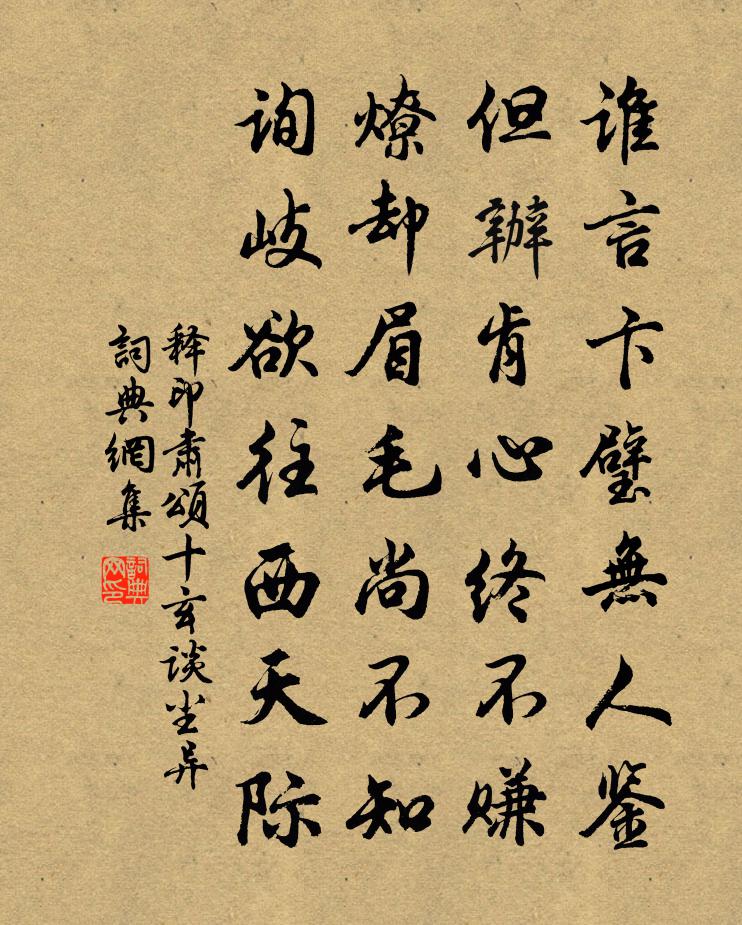 谁言卞璧無人鉴
但辦肯心终不赚
燎却眉毛尚不知
询岐欲往西天际
释印肃頌十玄谈尘异
詞典網集
詞典网印